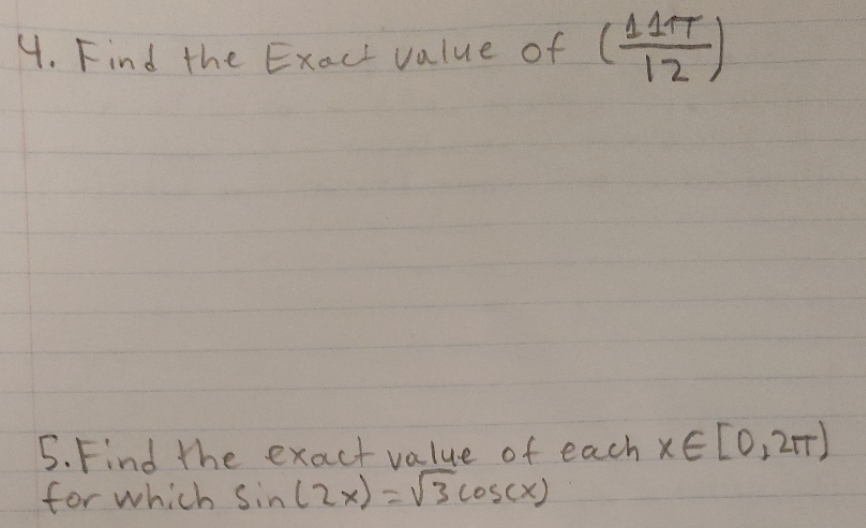 4. Find the Exact value of (11π/12)
5. Find the exact value of each x∈[0,2π)
for which sin(2x)=√3cos(x)